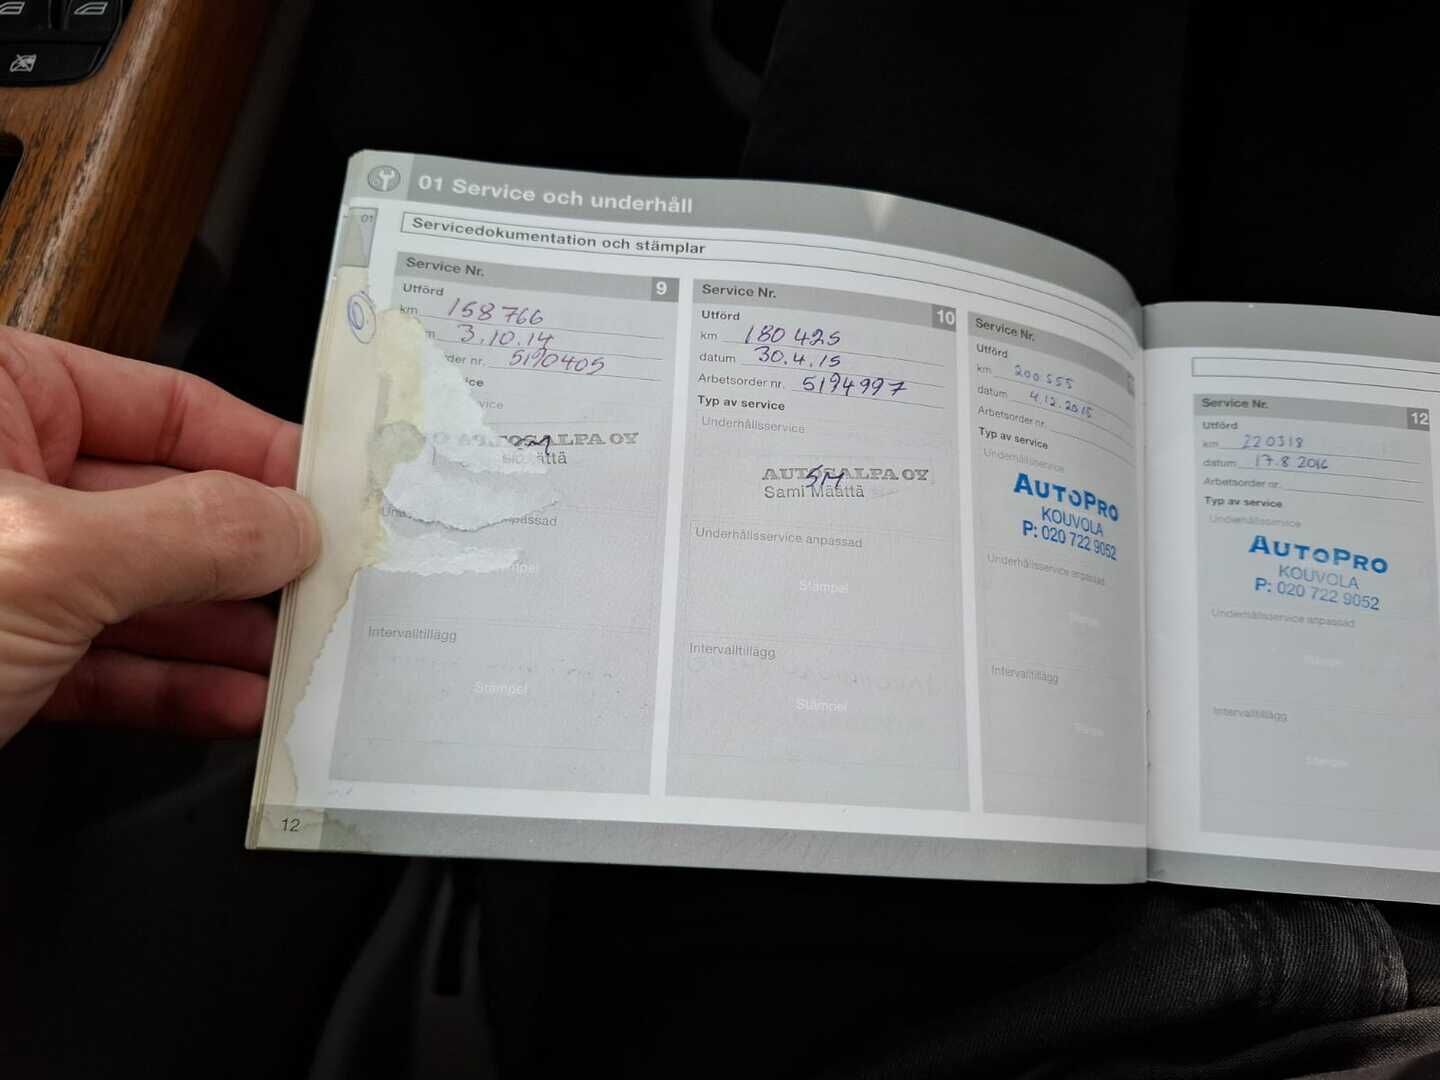 01 Service och underhåll
01
Servicedokumentation och stämplar
Service Nr. 9
Utförd
km 158 766
3.10.14
der nr. 5190405
vice
AUTOSALPA OY
ättä
npassad
Intervalltillägg
Stämpel
Service Nr. 10
Utförd
km 180 425
datum 30.4.15
Arbetsorder nr. 5194997
Typ av service
Underhållsservice
AUTOSALPA OY
SM
Sami Määttä
Underhållsservice anpassad
Stämpel
Intervalltillägg
Stämpel
Service Nr.
Utförd
km 200 555
datum 4.12.2015
Arbetsorder nr.
Typ av service
Underhållsservice
AUTOPRO
KOUVOLA
P: 020 722 9052
Underhållsservice anpassad
Stämpel
Intervalltillägg
Stämpel
Service Nr. 12
Utförd
km 220318
datum 17.8 2016
Arbetsorder nr.
Typ av service
Underhållsservice
AUTOPRO
KOUVOLA
P: 020 722 9052
Underhållsservice anpassad
Stämpel
Intervalltillägg
Stämpel
12